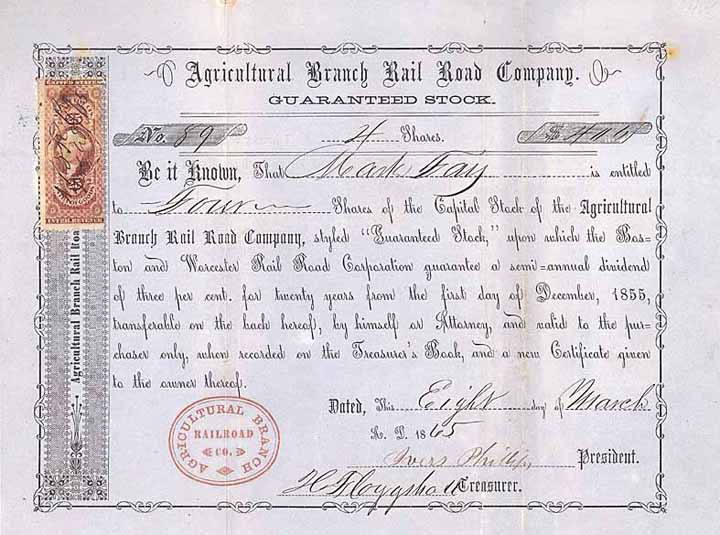 Agricultural Branch Rail Road Company.
GUARANTEED STOCK.
No. 89 4 Shares. $ 400
Be it Known, That Mark Fay is entitled
to Four Shares of the Capital Stock of the Agricultural
Branch Rail Road Company, styled "Guaranteed Stock," upon which the Bos-
ton and Worcester Rail Road Corporation guarantee a semi-annual dividend
of three per cent. for twenty years from the first day of December, 1855,
transferable on the back hereof, by himself or Attorney, and valid to the pur-
chaser only, when recorded on the Treasurer's Book, and a new Certificate given
to the owner thereof.
Dated, This Eight day of March
A. D. 1865
Ivers Phillips President.
Treasurer.
AGRICULTURAL BRANCH
RAILROAD
CO.
Agricultural Branch Rail Roa
INTER REVENUE